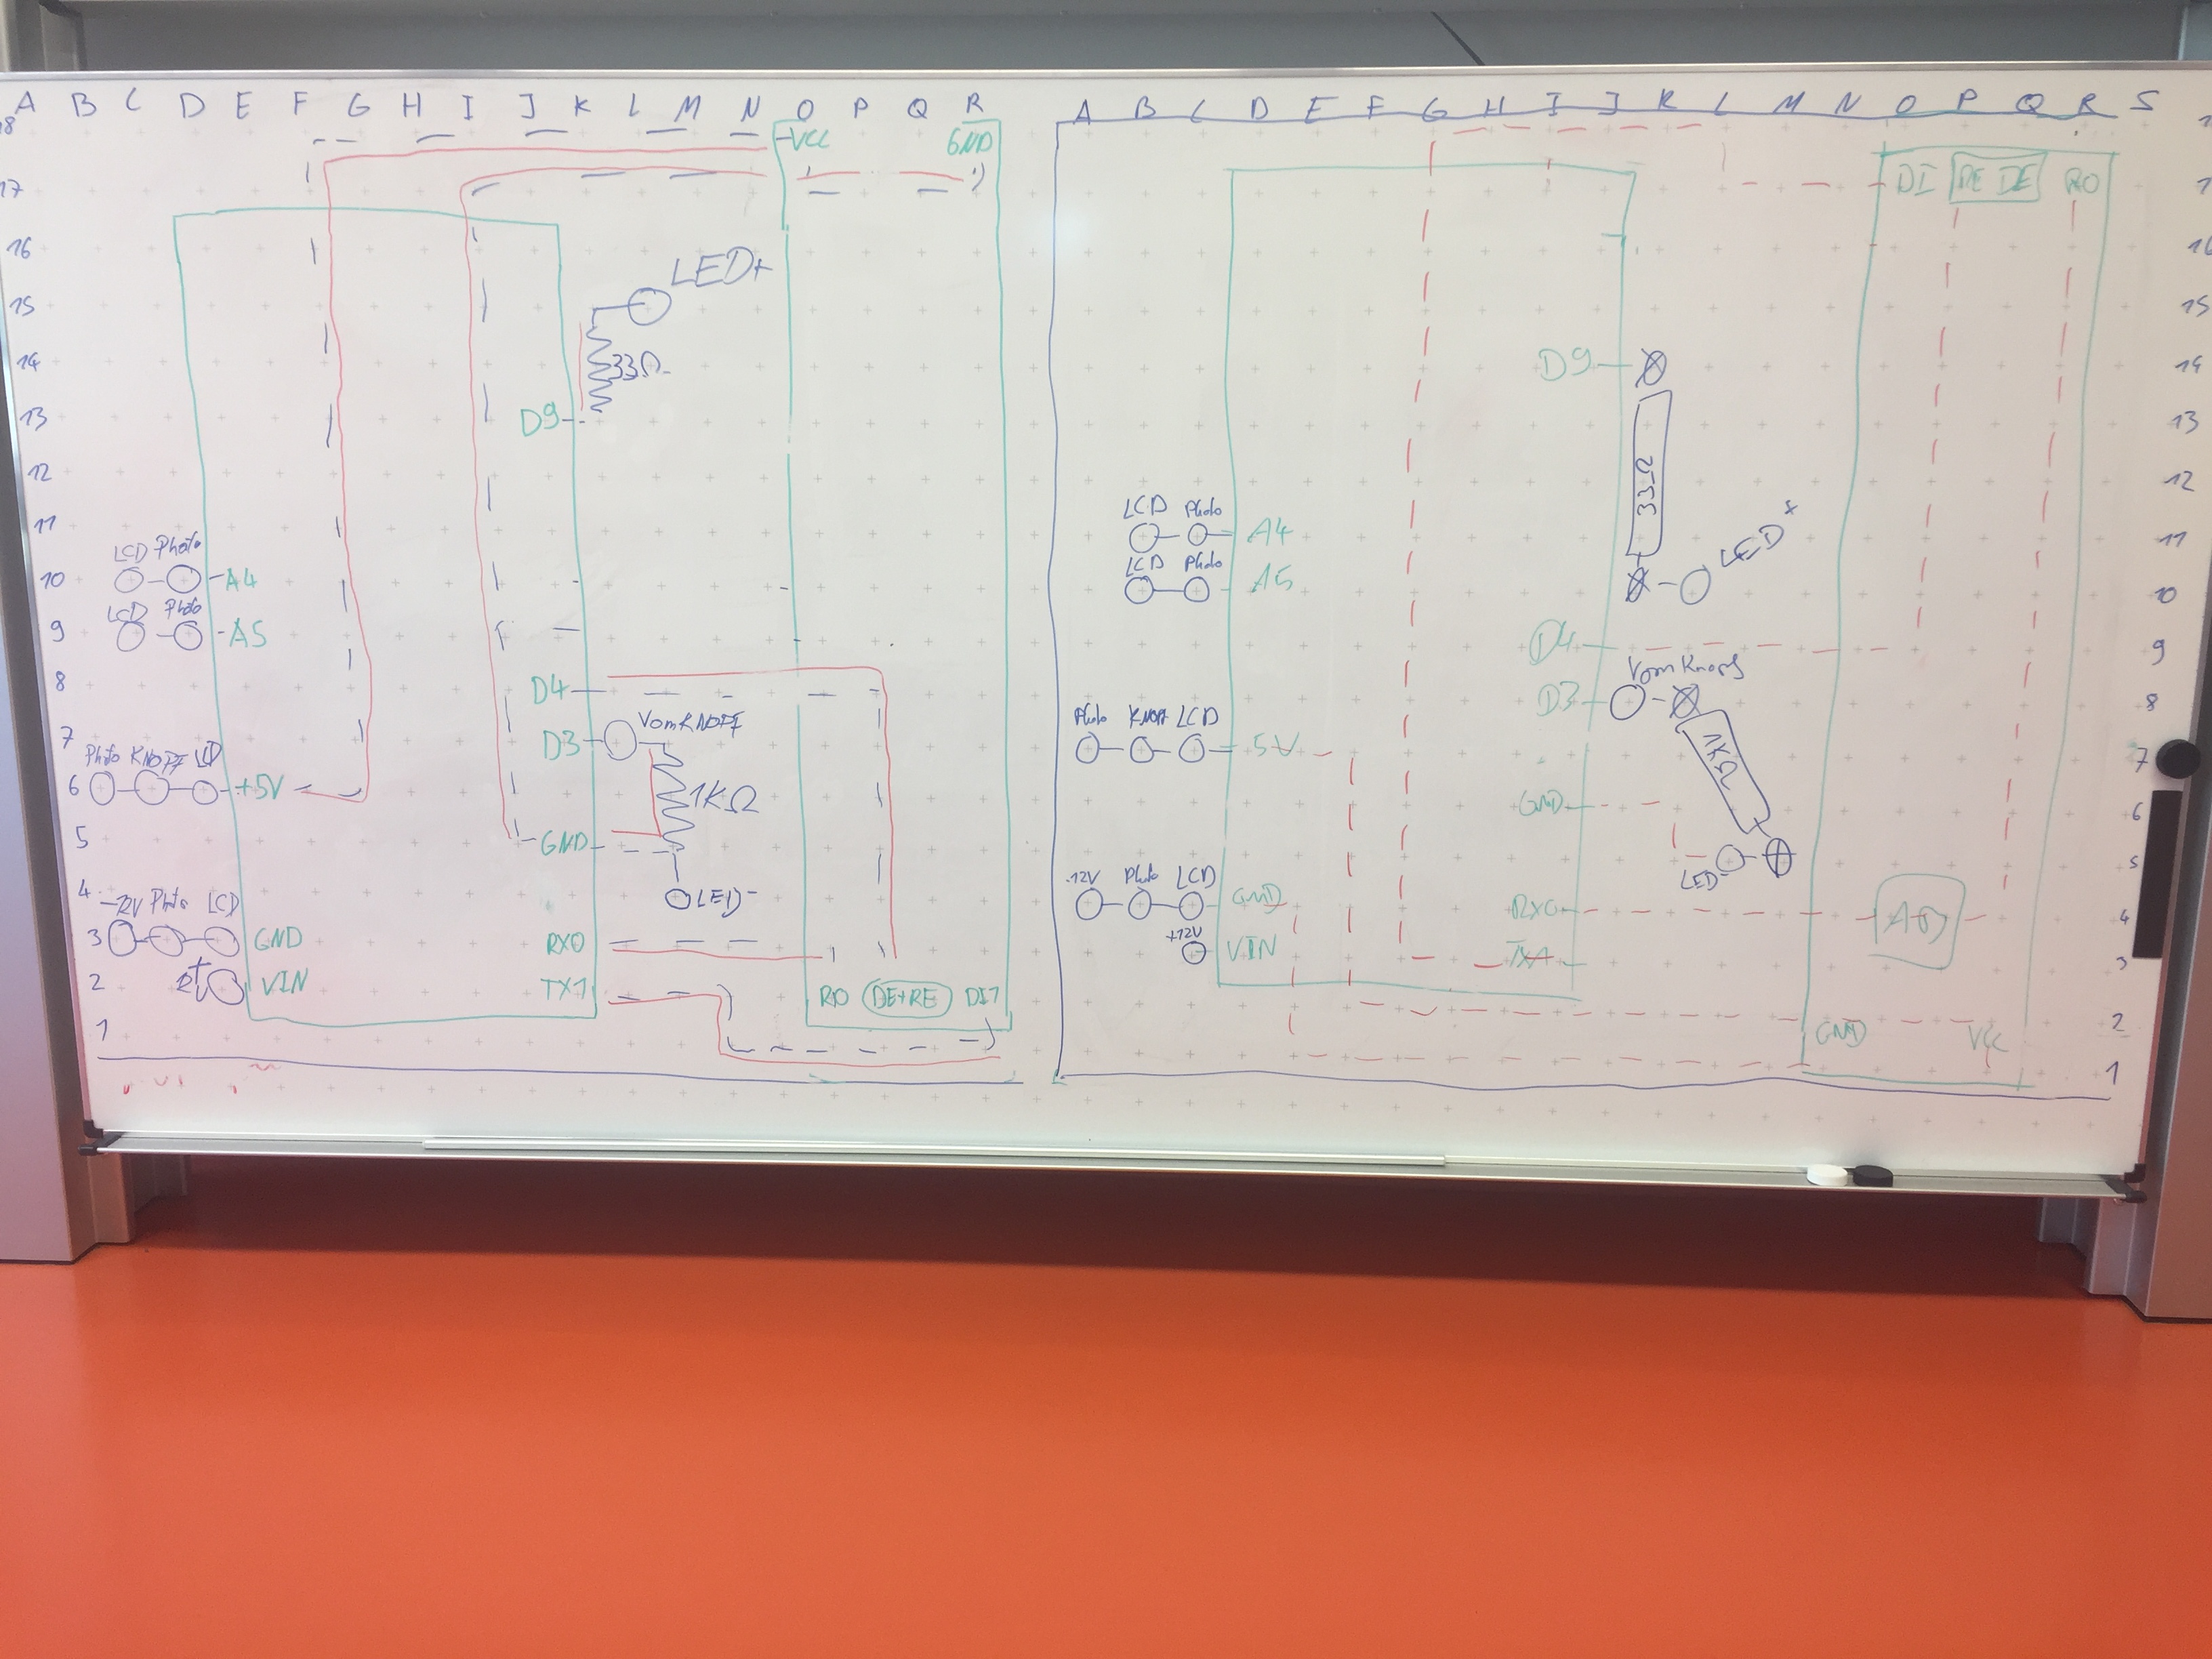 A B C D E F G H I J K L M N O P Q R
A B C D E F G H I J K L M N O P Q R S
18
17
16
15
14
13
12
11
10
9
8
7
6
5
4
3
2
1
VCC GND
LED+
33Ω
D9
LCD Photo
A4
LCD Photo
A5
D4
D3 Vom KNOPF
1KΩ
Photo KNOPF LCD
+5V
GND
LED-
Photo LCD
GND
VIN
RX0
TX1
RO DE+RE DI
DI RE DE RO
D9
33Ω
LED+
LCD Photo
A4
LCD Photo
A5
D4
Vom Knopf
D3
1KΩ
Photo KNOPF LCD
5V
GND
LED-
-12V Photo LCD
GND
+12V
VIN
RX0
TX1
GND VCC
16
15
14
13
12
11
10
9
8
7
6
5
4
3
2
1